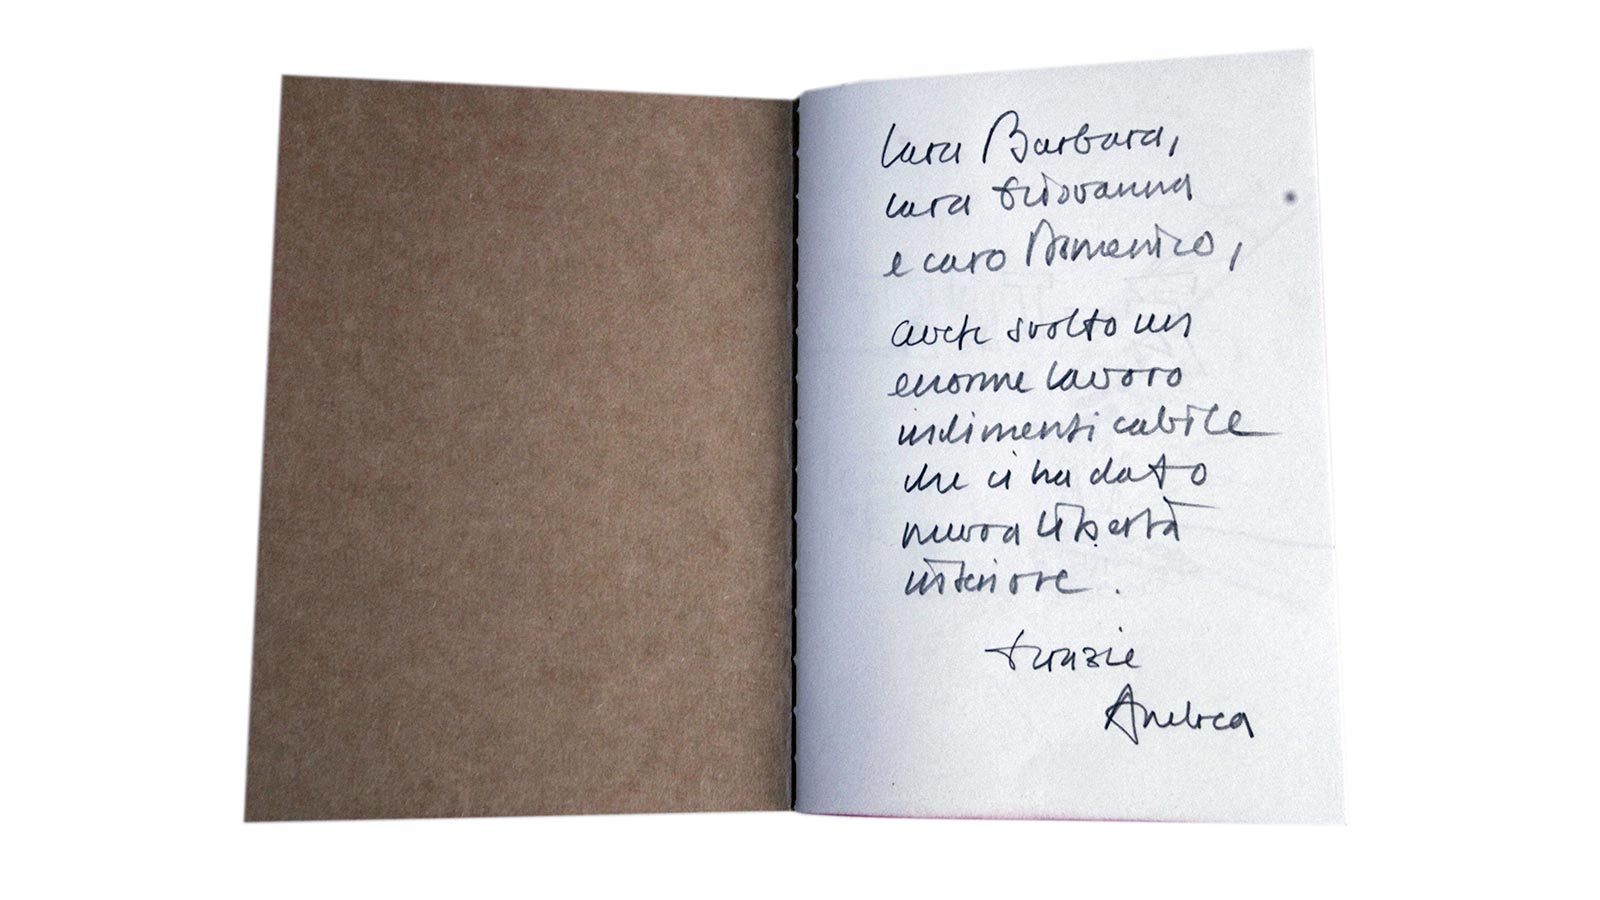 Cara Barbara,
cara Giovanna
e caro Domenico,
avete svolto un
enorme lavoro
indimenticabile
che ci ha dato
nuova libertà
interiore.
Grazie
Andrea